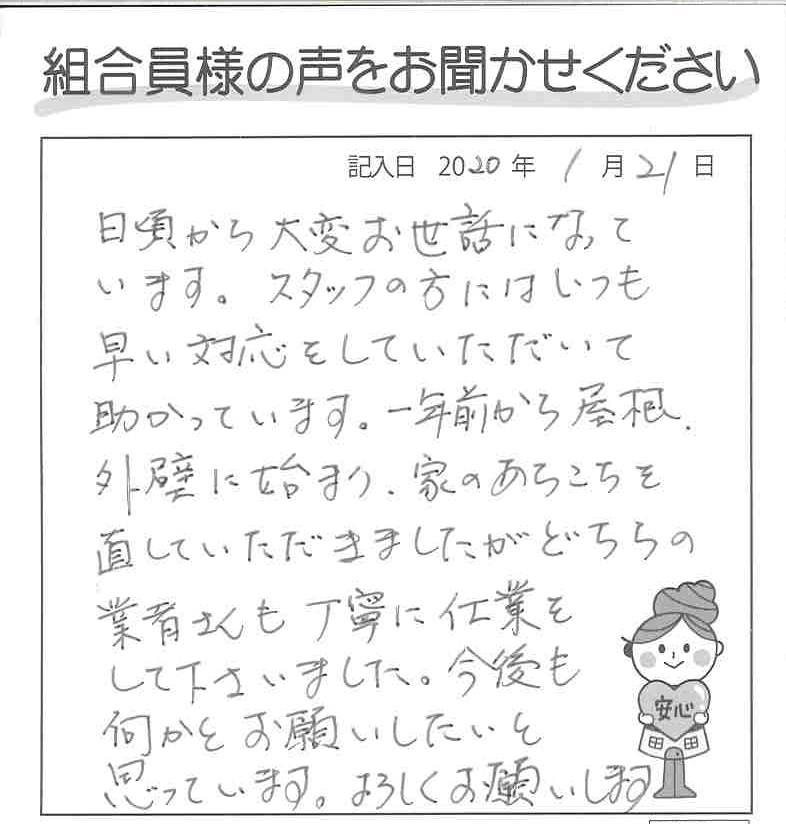 組合員様の声をお聞かせください
記入日 2020年 1月21日
日頃から大変お世話になって
います。スタッフの方にはいつも
早い対応をしていただいて
助かっています。一年前から屋根、
外壁に始まり、家のあちこちを
直していただきましたがどちらの
業者さんも丁寧に仕業を
して下さいました。今後も
何かとお願いしたいと
思っています。よろしくお願いします
安心